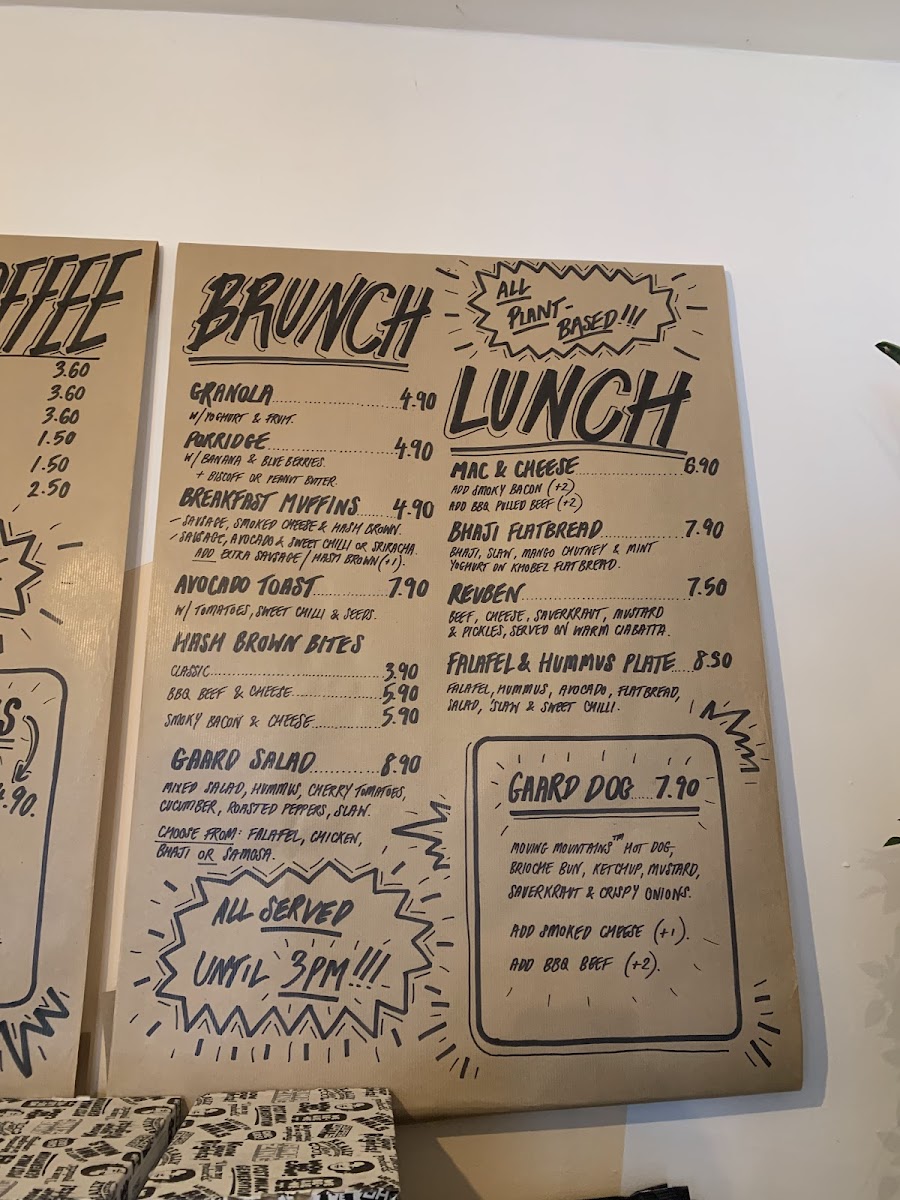 3.60
3.60
3.60
1.50
1.50
2.50
4.90.
BRUNCH
GRANOLA 4.90
W/ YOGHURT & FRUIT.
PORRIDGE 4.90
W/ BANANA & BLUEBERRIES.
+ BISCOFF OR PEANUT BUTTER.
BREAKFAST MUFFINS 4.90
- SAUSAGE, SMOKED CHEESE & HASH BROWN.
- SAUSAGE, AVOCADO & SWEET CHILLI OR SRIRACHA.
ADD EXTRA SAUSAGE / HASH BROWN (+1).
AVOCADO TOAST 7.90
W/ TOMATOES, SWEET CHILLI & SEEDS.
HASH BROWN BITES
CLASSIC 3.90
BBQ BEEF & CHEESE 5.90
SMOKY BACON & CHEESE 5.90
GAARD SALAD 8.90
MIXED SALAD, HUMMUS, CHERRY TOMATOES,
CUCUMBER, ROASTED PEPPERS, SLAW.
CHOOSE FROM: FALAFEL, CHICKEN,
BHAJI OR SAMOSA.
ALL SERVED
UNTIL 3PM!!!
ALL
PLANT-
BASED!!!
LUNCH
MAC & CHEESE 6.90
ADD SMOKY BACON (+2)
ADD BBQ PULLED BEEF (+2)
BHAJI FLATBREAD 7.90
BHAJI, SLAW, MANGO CHUTNEY & MINT
YOGHURT ON KHOBEZ FLATBREAD.
REUBEN 7.50
BEEF, CHEESE, SAUERKRAUT, MUSTARD
& PICKLES, SERVED ON WARM CIABATTA.
FALAFEL & HUMMUS PLATE 8.90
FALAFEL, HUMMUS, AVOCADO, FLATBREAD,
SALAD, SLAW & SWEET CHILLI.
GAARD DOG 7.90
MOVING MOUNTAINS™ HOT DOG,
BRIOCHE BUN, KETCHUP, MUSTARD,
SAUERKRAUT & CRISPY ONIONS.
ADD SMOKED CHEESE (+1).
ADD BBQ BEEF (+2).